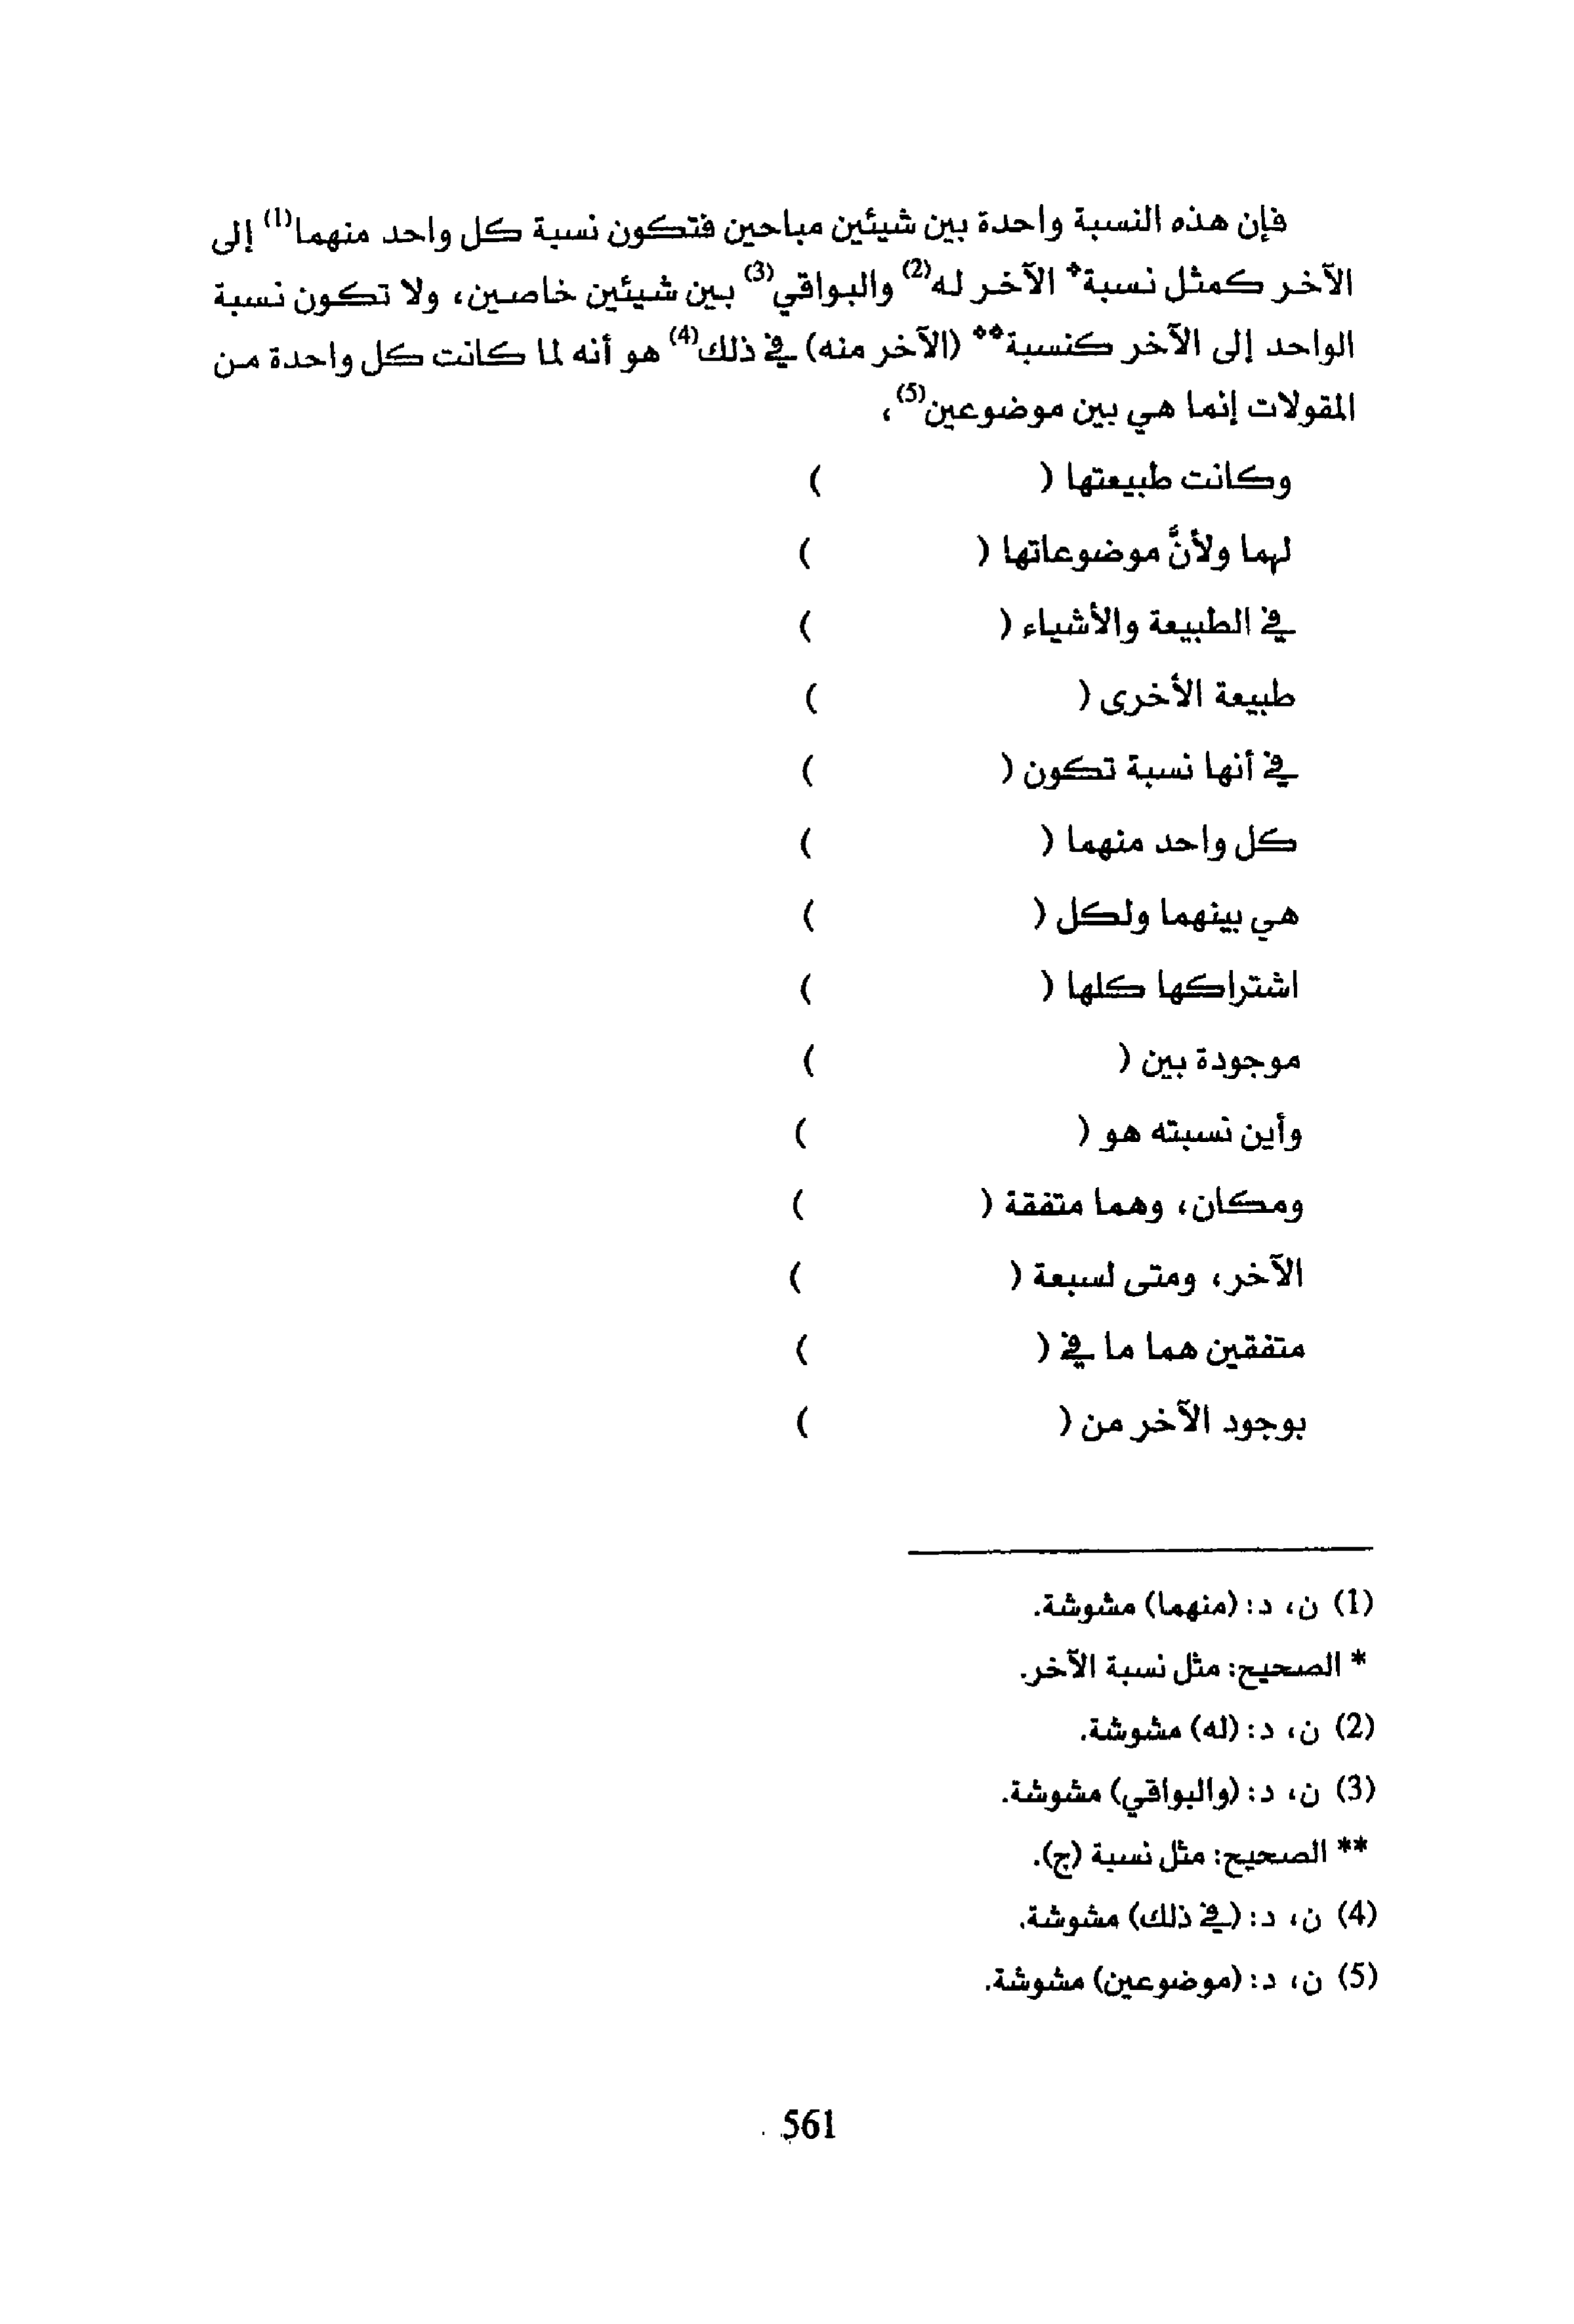 فإن هذه النسبة واحدة بين شيئين مباحين فتكون نسبة كل واحد منهما(1) إلى
الآخر كمثل نسبة* الآخر له(2) والبواقي(3) بين شيئين خاصين، ولا تكون نسبة
الواحد إلى الآخر كنسبة** (الآخر منه) في ذلك(4) هو أنه لما كانت كل واحدة من
المقولات إنما هي بين موضوعين(5)،
وكانت طبيعتها ( )
لهما ولأنَّ موضوعاتها ( )
في الطبيعة والأشياء ( )
طبيعة الأخرى ( )
في أنها نسبة تكون ( )
كل واحد منهما ( )
هي بينهما ولكل ( )
اشتراكها كلها ( )
موجودة بين ( )
وأين نسبته هو ( )
ومكان، وهما متفقة ( )
الآخر، ومتى لسبعة ( )
متفقين هما ما في ( )
بوجود الآخر من ( )
(1) ن، د: (منهما) مشوشة.
* الصحيح: مثل نسبة الآخر.
(2) ن، د: (له) مشوشة.
(3) ن، د: (والبواقي) مشوشة.
** الصحيح: مثل نسبة (ج).
(4) ن، د: (في ذلك) مشوشة.
(5) ن، د: (موضوعين) مشوشة.
561